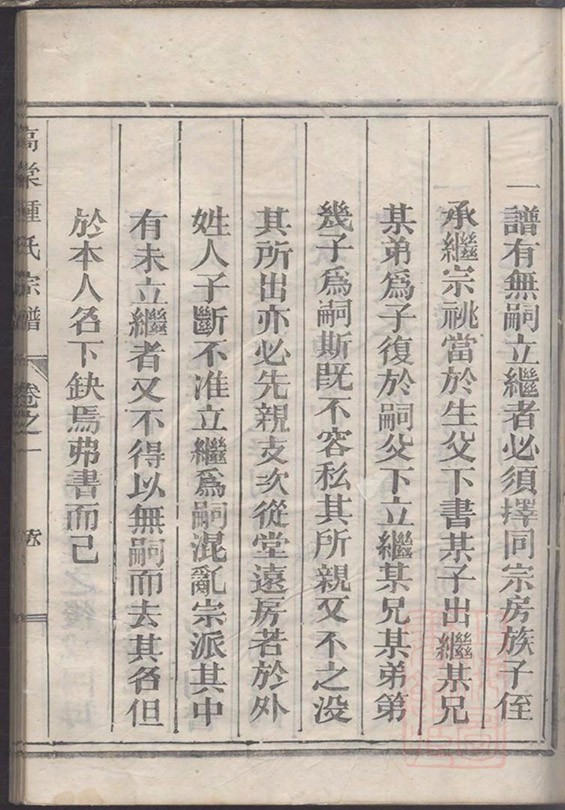 一譜有無嗣立繼者必須擇同宗房族子侄
承繼宗祧當於生父下書某子出繼某兄
某弟爲子復於嗣父下立繼某兄某弟第
幾子爲嗣斯既不容私其所親又不之没
其所出亦必先親支次從堂遠房若於外
姓人子斷不准立繼爲嗣混亂宗派其中
有未立繼者又不得以無嗣而去其名但
於本人名下缺焉弗書而已
高棠鍾氏宗譜
卷之一